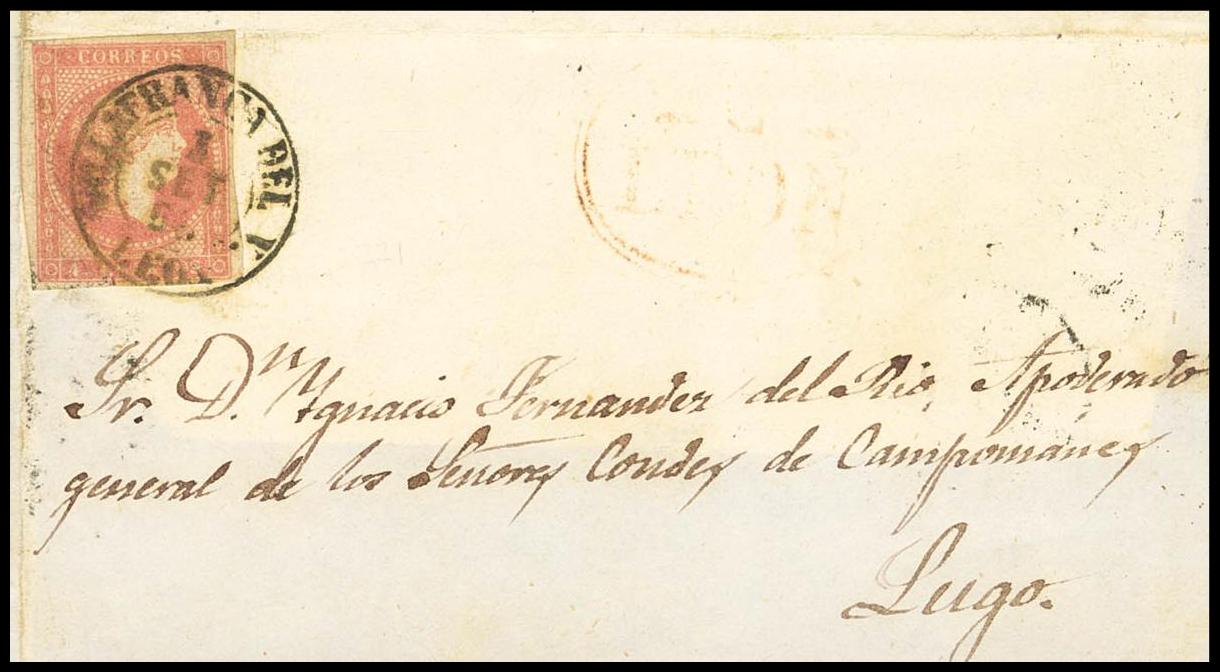 CORREOS
VILLAFRANCA DEL V.
1
SET
LEON
Sr. Dn. Ygnacio Fernandez del Rio, Apoderado
general de los Señores Condes de Campomanes
Lugo.